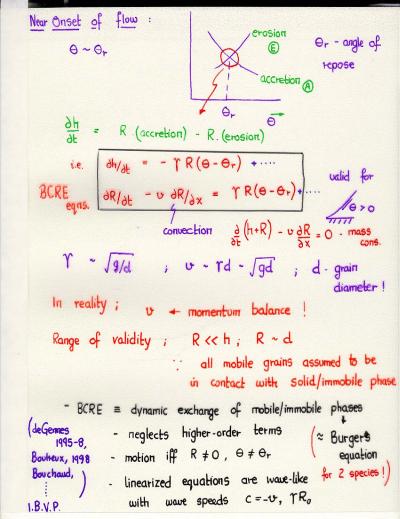 Near Onset of flow :
θ ~ θr
erosion
Ⓔ
accretion Ⓐ
θr
θ
θr - angle of
repose
∂h/∂t = R (accretion) - R.(erosion)
i.e. ∂h/∂t = - γ R(θ-θr) + ....
BCRE
eqns.
∂R/∂t - υ ∂R/∂x = γR(θ-θr)+....
valid for
θ>0
convection
∂/∂t (h+R) - υ ∂R/∂x = 0 - mass
cons.
γ ~ √g/d ; υ ~ γd ~ √gd ; d - grain
diameter !
In reality ; υ ← momentum balance !
Range of validity ; R << h ; R ~ d
∵ all mobile grains assumed to be
in contact with solid/immobile phase
- BCRE ≡ dynamic exchange of mobile/immobile phases
- neglects higher-order terms
- motion iff R ≠ 0, θ ≠ θr
- linearized equations are wave-like
with wave speeds c = -υ, γR₀
(≈ Burger's
equation
for 2 species!)
(deGennes
1995-8,
Boutreux, 1998
Bouchaud,
⋮ )
I.B.V.P.